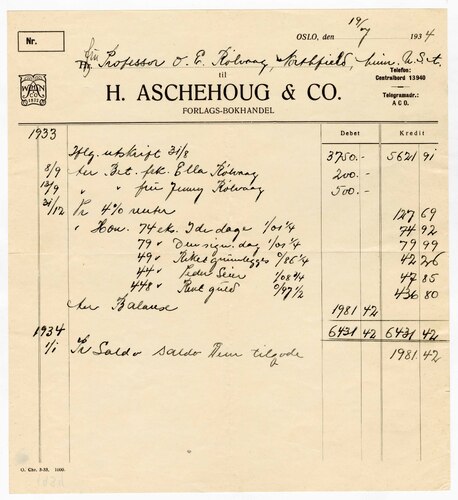 Nr.
OSLO, den 19/7 1934
Fru Professor O. E. Rölvaag, Northfield, Minn. U.S.A.
til
Telefon:
Centralbord 13940
Telegramadr.:
ACO.
H. ASCHEHOUG & CO.
FORLAGS-BOKHANDEL
1872
Debet Kredit
1933
Iflg. utskrift 31/8 3750.- 5621 91
8/9 An Bet. frk. Ella Rölvaag 200.-
12/9 " " fru Jenny Rölvaag 500.-
31/12 Pr 4% renter 127 69
" Hon. 74 ek. I de dage 1/01 1/4 74 92
79 " Den sign. dag 1/01 1/4 79 99
49 " Riket grunlegges 0/86 1/4 42 26
44 " Peder Seier 1/08 3/4 47 85
448 " Rent gull 0/97 1/2 436 80
An Balanse 1981 42
6431 42 6431 42
1934
1/1 Pr Saldo Dem tilgode 1981 42
G. Chr. 3-33. 1000.